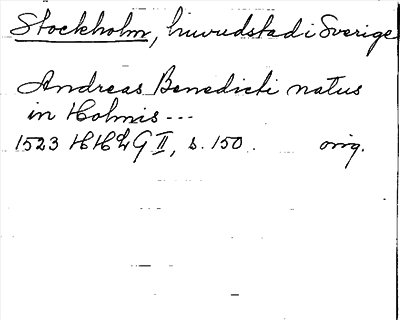 Stockholm, huvudstad i Sverige
Andreas Benedicti natus
in Holmis ---
1523 HHLG II, s. 150. orig.